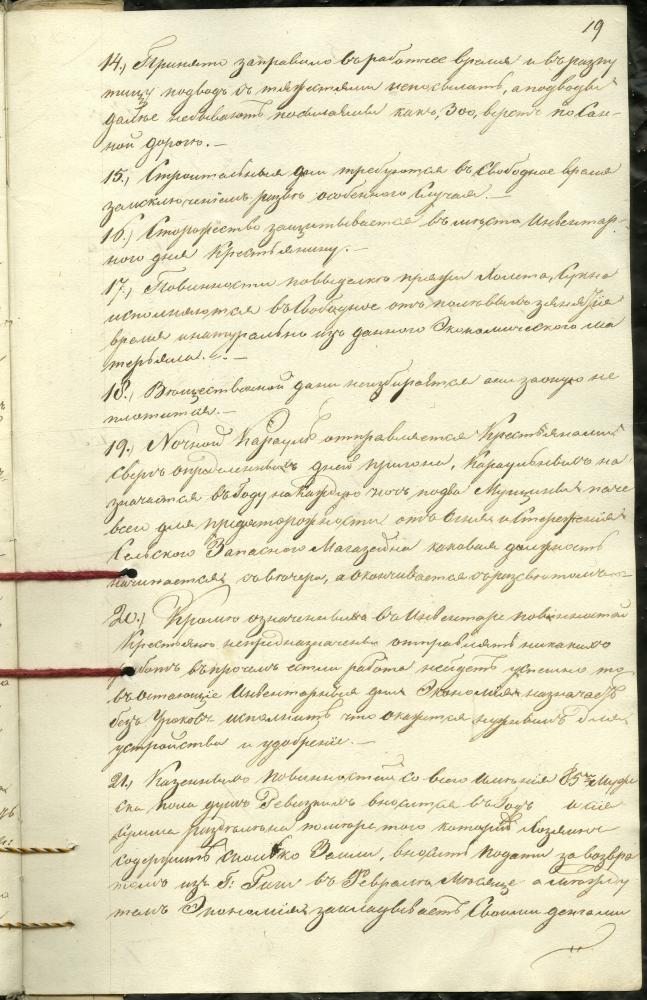 19
14., Принято заправило въ рабочее время и въ распу
тицу подводъ съ тяжестями непосылать, а подводы
далѣе небываютъ посылаемы какъ, 300, верстъ по Сан-
ной дорогѣ. —
15., Строительныя дни требуются въ Свободное время
заисключеніемъ развѣ особеннаго Случая. —
16., Сторожество защитывается въ мѣсто Инвентар-
ного дня Крестьянину. —
17., Повинности повыделкѣ пряжи Холста, Сукна
исполняются въ Свободное отъ полевыхъ занятіе
время инатурально изъ данного Экономического ма
терьяла. —
18., Вощественной дани неизбирается они заоную не
платится. —
19., Ночной Караулъ отправляется Крестьянами
сверхъ определенныхъ дней пригона, Караульныхъ на
значается въ Году на Каждую ночь подва Мущины паче
всего для предосторожности отъ Огня и Стереженія
Сельского Запасного Магазейна каковая должность
начинается съ вечера, а окончивается съ разсвѣтомъ
20., Кромѣ означенныхъ въ Инвентаре повинностей
Крестьяне непредназначены отправлять никакихъ
работъ въ прочемъ если работа нейдетъ успешно то
въ остающіе Инвентарныя дни Экономія назначаетъ
безъ Уроковъ исполнить что окажется нужнымъ для
устройства и удобреніе. —
21., Казенныхъ Повинностей со всего Имѣнія 85 Мужe
ска пола душъ Ревизкихъ вносится въ Годъ и сія
сумма раздѣлена посмотре того который Хозяинъ
содержитъ сколько Земли, вноситъ подати за возвра
томъ изъ Г: Риги въ Февралѣ Мѣсяце а
темъ Экономія закладываетъ Своими деньгами